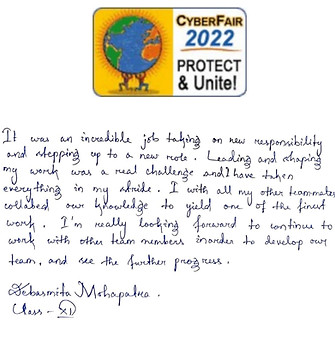 CYBERFAIR
2022
PROTECT
& Unite!
It was an incredible job taking on new responsibility
and stepping up to a new role. Leading and shaping
my work was a real challenge and I have taken
everything in my stride. I with all my other teammates
collabed our knowledge to yield one of the finest
work. I'm really looking forward to continue to
work with other team members inorder to develop our
team, and see the further progress.
Debasmita Mohapatra.
Class - XI